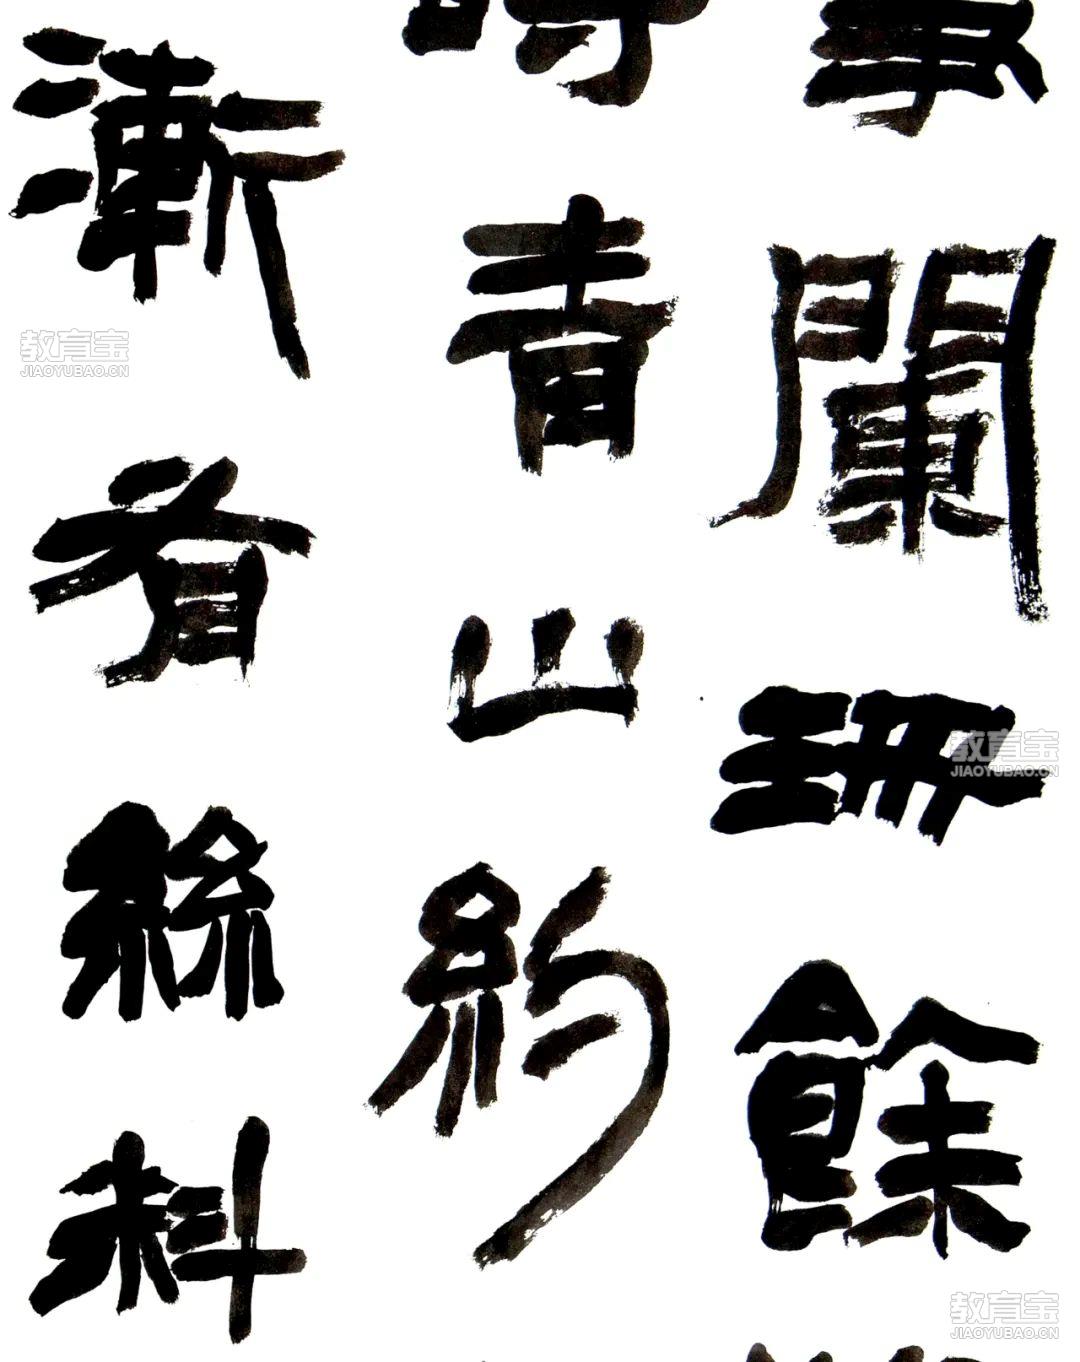 闌珊餘
青山約
漸有絲料
教育宝
JIAOYUBAO.CN
教育宝
JIAOYUBAO.CN
教育宝
JIAOYUBAO.CN